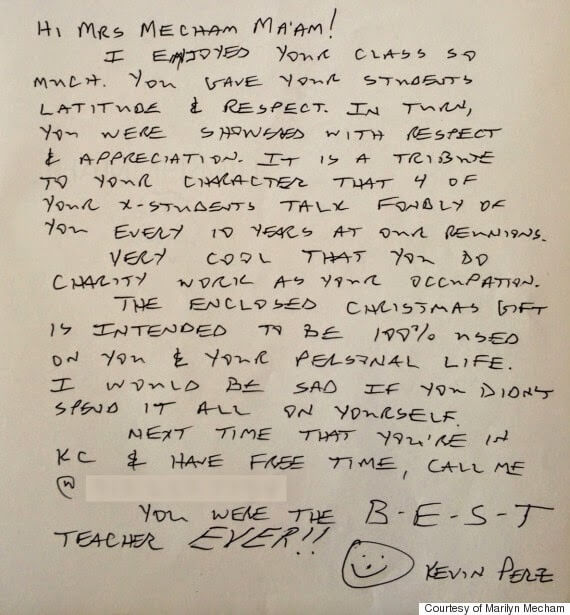 HI MRS MECHAM MA'AM!
I ENJOYED YOUR CLASS SO
MUCH. YOU GAVE YOUR STUDENTS
LATITUDE & RESPECT. IN TURN,
YOU WERE SHOWERED WITH RESPECT
& APPRECIATION. IT IS A TRIBUTE
TO YOUR CHARACTER THAT 4 OF
YOUR X-STUDENTS TALK FONDLY OF
YOU EVERY 10 YEARS AT OUR REUNIONS.
VERY COOL THAT YOU DO
CHARITY WORK AS YOUR OCCUPATION.
THE ENCLOSED CHRISTMAS GIFT
IS INTENDED TO BE 100% USED
ON YOU & YOUR PERSONAL LIFE.
I WOULD BE SAD IF YOU DIDN'T
SPEND IT ALL ON YOURSELF.
NEXT TIME THAT YOU'RE IN
KC & HAVE FREE TIME, CALL ME
@
YOU WERE THE B-E-S-T
TEACHER EVER!!
KEVIN PERZ
Courtesy of Marilyn Mecham